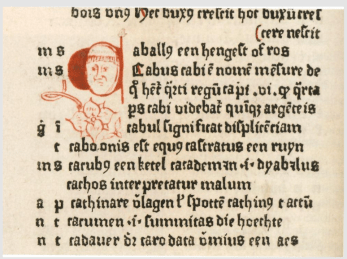 bois vn9 lyet dux9 crescit hoc duxū cres
(cere nescit
m s aball9 een hengest of ros
m s Cabus cabi ē nomē mēsure de
q̄ hēt q̄rti regū capt .vi. q̄ q̄rta
ps cabi videbat̄ quīq3 argēteis
g̊ ī cabul significat displicētiam
t cabo onis est equ9 castratus een ruyn
m s cacub9 een ketel cacademan .i. dyabolus
cachos interpretatur malum
a p cathinare v̄lagen ł spottē cathing t actū
n t cacumen .i. summitas die hoechte
n t cadauer dr̄ caro data v̄mius een aes